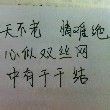 天不老 情难绝
心似双丝网
中有千千结